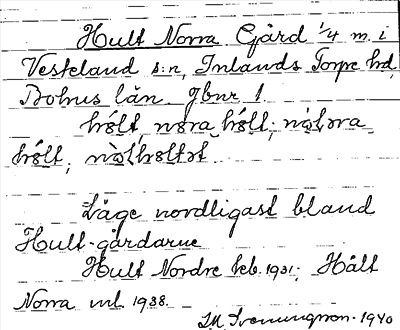 Hult Norra Gård 1/4 m. i
Vesteland s:n, Inlands Torpe hd,
Bohus län. Jbnr 1.
ho̊lt, nora ho̊lt, nò̱ḷəra
ho̊lt, nò̱ḷho̊ltət
Läge nordligast bland
Hult-gårdarne
Hult Nordre keb. 1931; Hält
Norra utl 1938.
1940